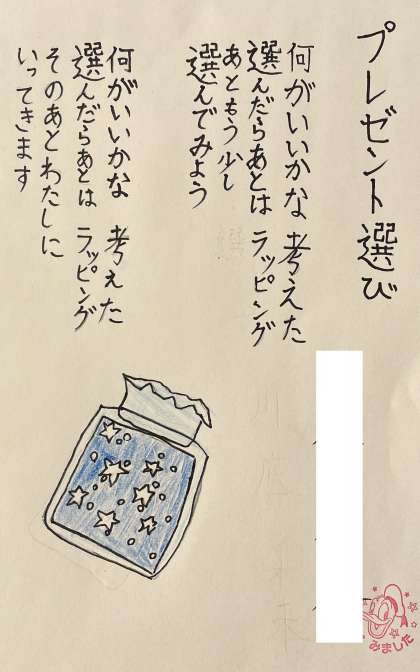 プレゼント選び
何がいいかな 考えた
選んだらあとは ラッピング
あともう少し
選んでみよう
何がいいかな 考えた
選んだらあとは ラッピング
そのあとわたしに
いってきます
みました